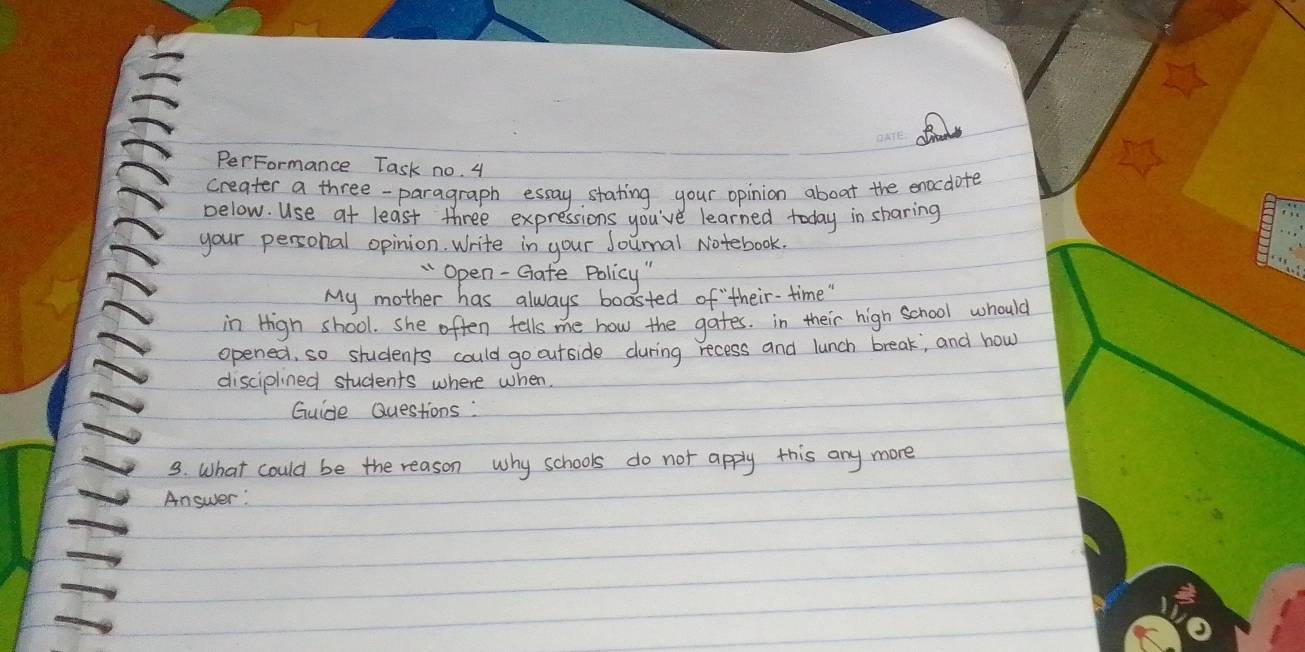 DATE:
PerFormance Task no. 4
creater a three-paragraph essay stating your opinion aboat the enocdote
below. Use at least three expressions you've learned today in sharing
your personal opinion. Write in your Journal Notebook.
"Open-Gate Policy"
My mother has always boasted of "their-time"
in High shool. She often tells me how the gates. in their high School whould
opened, so students could go outside during recess and lunch break, and how
disciplined students where when.
Guide Questions:
3. What could be the reason why schools do not apply this any more
Answer: